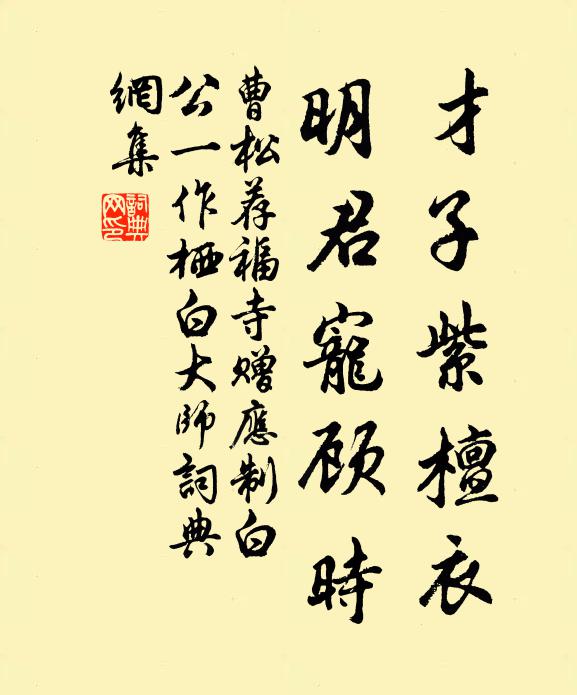 才子紫檀衣
明君寵顾時
曹松荐福寺赠應制白
公一作栖白大師詞典
網集
詞典网印